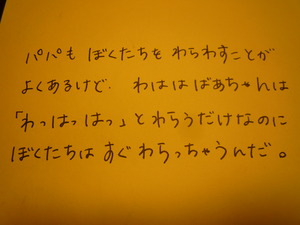 パパも ぼくたちを わらわすことが
よくあるけど、 わははばあちゃんは
「わっはっはっ」と わらうだけなのに
ぼくたちは すぐ わらっちゃうんだ。